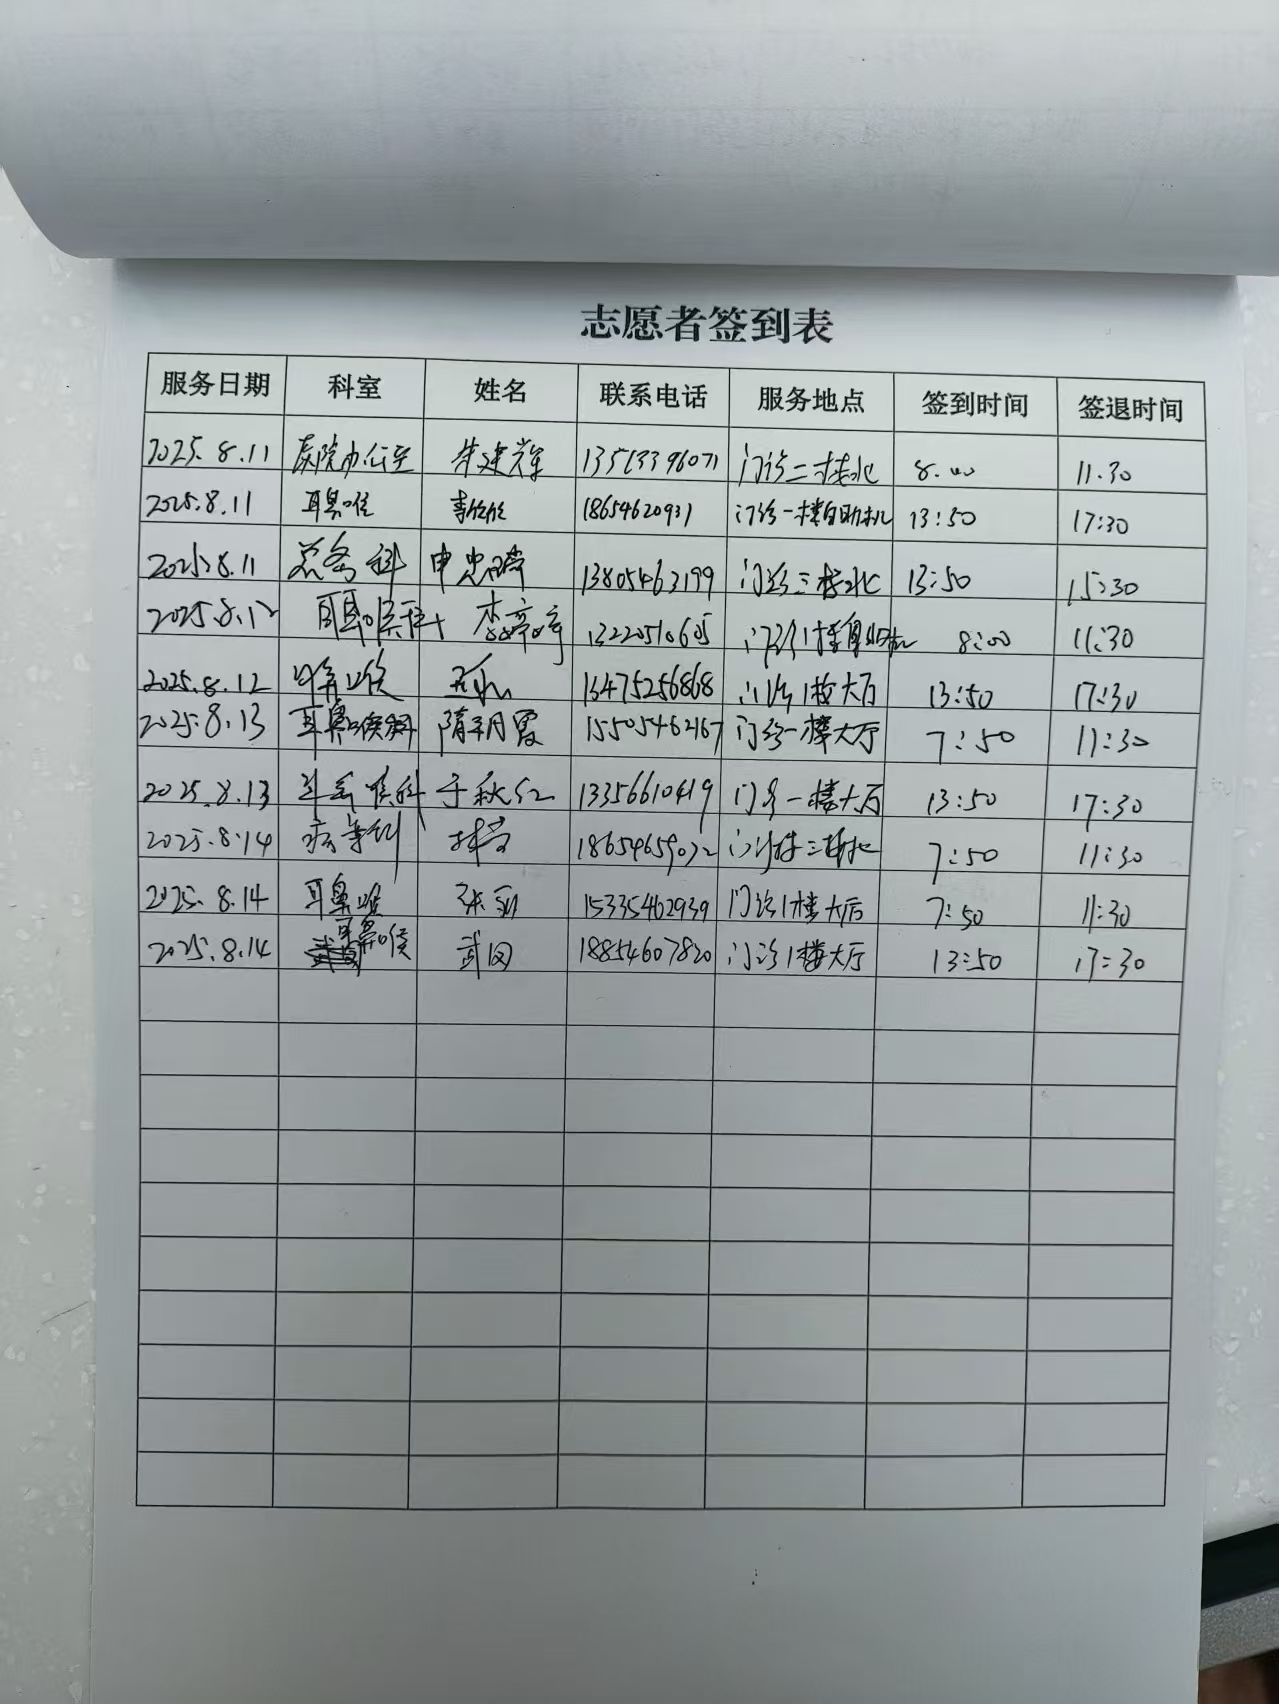 志愿者签到表
服务日期 科室 姓名 联系电话 服务地点 签到时间 签退时间
2025.8.11 医院办公室 朱建辉 13513396071 门诊二楼北 8.00 11.30
2025.8.11 耳鼻喉 18654620931 门诊一楼自助机 13:50 17:30
2025.8.11 总务科 申忠 13805463199 门诊三楼北 13:50 15:30
2025.8.12 耳鼻喉科 李婷婷 13220510605 门诊1楼自助机 8:00 11:30
2025.8.12 耳鼻喉 13475256868 门诊1楼大厅 13:50 17:30
2025.8.13 耳鼻喉科 隋明霞 15505462167 门诊一楼大厅 7:50 11:30
2025.8.13 耳鼻喉科 于秋红 13356610419 门诊一楼大厅 13:50 17:30
2025.8.14 18654659072 7:50 11:30
2025.8.14 耳鼻喉 15335462939 门诊1楼大厅 7:50 11:30
2025.8.14 耳鼻喉 武 18854607820 门诊1楼大厅 13:50 17:30